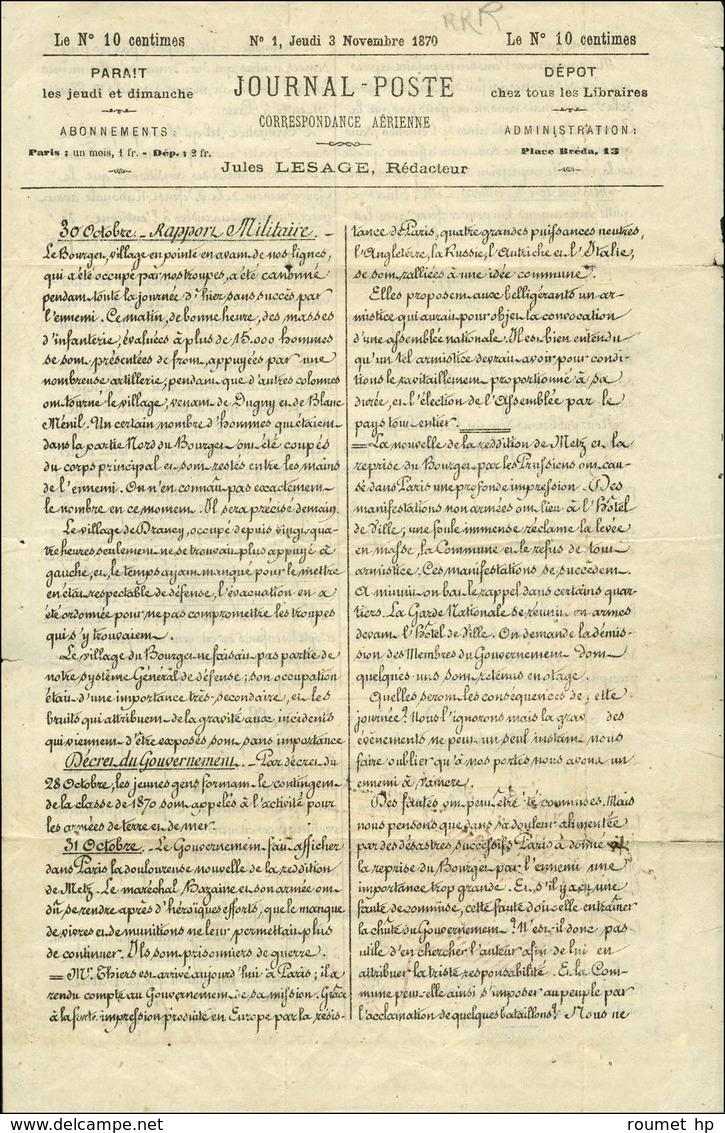 RRR
Le N° 10 centimes
N° 1, Jeudi 3 Novembre 1870
Le N° 10 centimes
PARAIT
les jeudi et dimanche
ABONNEMENTS :
Paris : un mois, 1 fr. - Dép. : 2 fr.
JOURNAL-POSTE
CORRESPONDANCE AÉRIENNE
Jules LESAGE, Rédacteur
DÉPOT
chez tous les Libraires
ADMINISTRATION :
Place Bréda, 13
30 Octobre. - Rapport Militaire. -
Le Bourget, village en pointe en avant de nos lignes,
qui a été occupé par nos troupes, a été canonné
pendant toute la journée d'hier sans succès par
l'ennemi. Ce matin, de bonne heure, des masses
d'infanterie, évaluées à plus de 15.000 hommes
se sont présentées de front, appuyées par une
nombreuse artillerie, pendant que d'autres colonnes
ont tourné le village, venant de Dugny et de Blanc
Ménil. Un certain nombre d'hommes qui étaient
dans la partie Nord du Bourget ont été coupés
du corps principal et sont restés entre les mains
de l'ennemi. On n'en connaît pas exactement
le nombre en ce moment. Il sera précisé demain.
Le village de Drancy, occupé depuis vingt-qua-
tre heures seulement ne se trouvait plus appuyé à
gauche, et, le temps ayant manqué pour le mettre
en état respectable de défense, l'évacuation en a
été ordonnée pour ne pas compromettre les troupes
qui s'y trouvaient.
Le village du Bourget ne faisait pas partie de
notre système Général de défense ; son occupation
était d'une importance très-secondaire, et les
bruits qui attribuent de la gravité aux incidents
qui viennent d'être exposés sont sans importance
Décret du Gouvernement. - Par décret du
28 Octobre, les jeunes gens formant le contingent
de la classe de 1870 sont appelés à l'activité pour
les armées de terre et de mer.
31 Octobre. - Le Gouvernement fait afficher
dans Paris la douloureuse nouvelle de la reddition
de Metz. Le maréchal Bazaine et son armée ont
dû se rendre après d'héroïques efforts, que le manque
de vivres et de munitions ne leur permettait plus
de continuer. Ils sont prisonniers de guerre.
= Mr. Thiers est arrivé aujourd'hui à Paris ; il a
rendu compte au Gouvernement de sa mission. Grâce
à la forte impression produite en Europe par la résis-
tance de Paris, quatre grandes puissances neutres,
l'Angleterre, la Russie, l'Autriche et l'Italie,
se sont ralliées à une idée commune.
Elles proposent aux belligérants un ar-
mistice qui aurait pour objet la convocation
d'une assemblée nationale. Il est bien entendu
qu'un tel armistice devrait avoir pour condi-
tions le ravitaillement proportionné à sa
durée, et l'élection de l'Assemblée par le
pays tout entier.
= La nouvelle de la reddition de Metz et la
reprise du Bourget par les Prussiens ont cau-
sé dans Paris une profonde impression. Des
manifestations non armées ont lieu à l'Hôtel
de Ville ; une foule immense réclame la levée
en masse, la Commune et le refus de tout
armistice. Ces manifestations se succèdent.
A minuit on bat le rappel dans certains quar-
tiers. La Garde Nationale se réunit en armes
devant l'Hôtel de Ville. On demande la démis-
sion des Membres du Gouvernement dont
quelques-uns sont retenus en otage.
Quelles seront les conséquences de cette
journée ? Nous l'ignorons mais la grav des
évènements ne peut un seul instant nous
faire oublier qu'à nos portes nous avons un
ennemi à vaincre.
Des fautes ont peut être été commises. Mais
nous pensons que dans sa douleur alimentée
par des désastres successifs Paris à donné à
la reprise du Bourget par l'ennemi une
importance trop grande. Et s'il y a eu une
faute de commise, cette faute doit-elle entraîner
la chûte du Gouvernement ? N'est-il donc pas
utile d'en chercher l'auteur afin de lui en
attribuer la triste responsabilité. Et la Com-
mune peut-elle ainsi s'imposer au peuple par
l'acclamation de quelques bataillons ? Nous ne
roumet hp